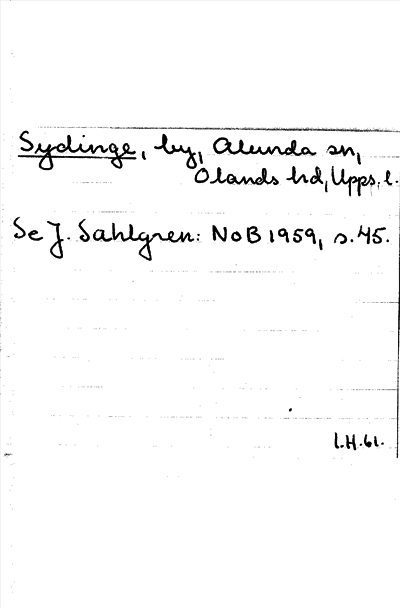 Sydinge, by, Alunda sn,
Olands hd, Upps. l.
Se J. Sahlgren: NoB 1959, s. 45.
I.H.61.